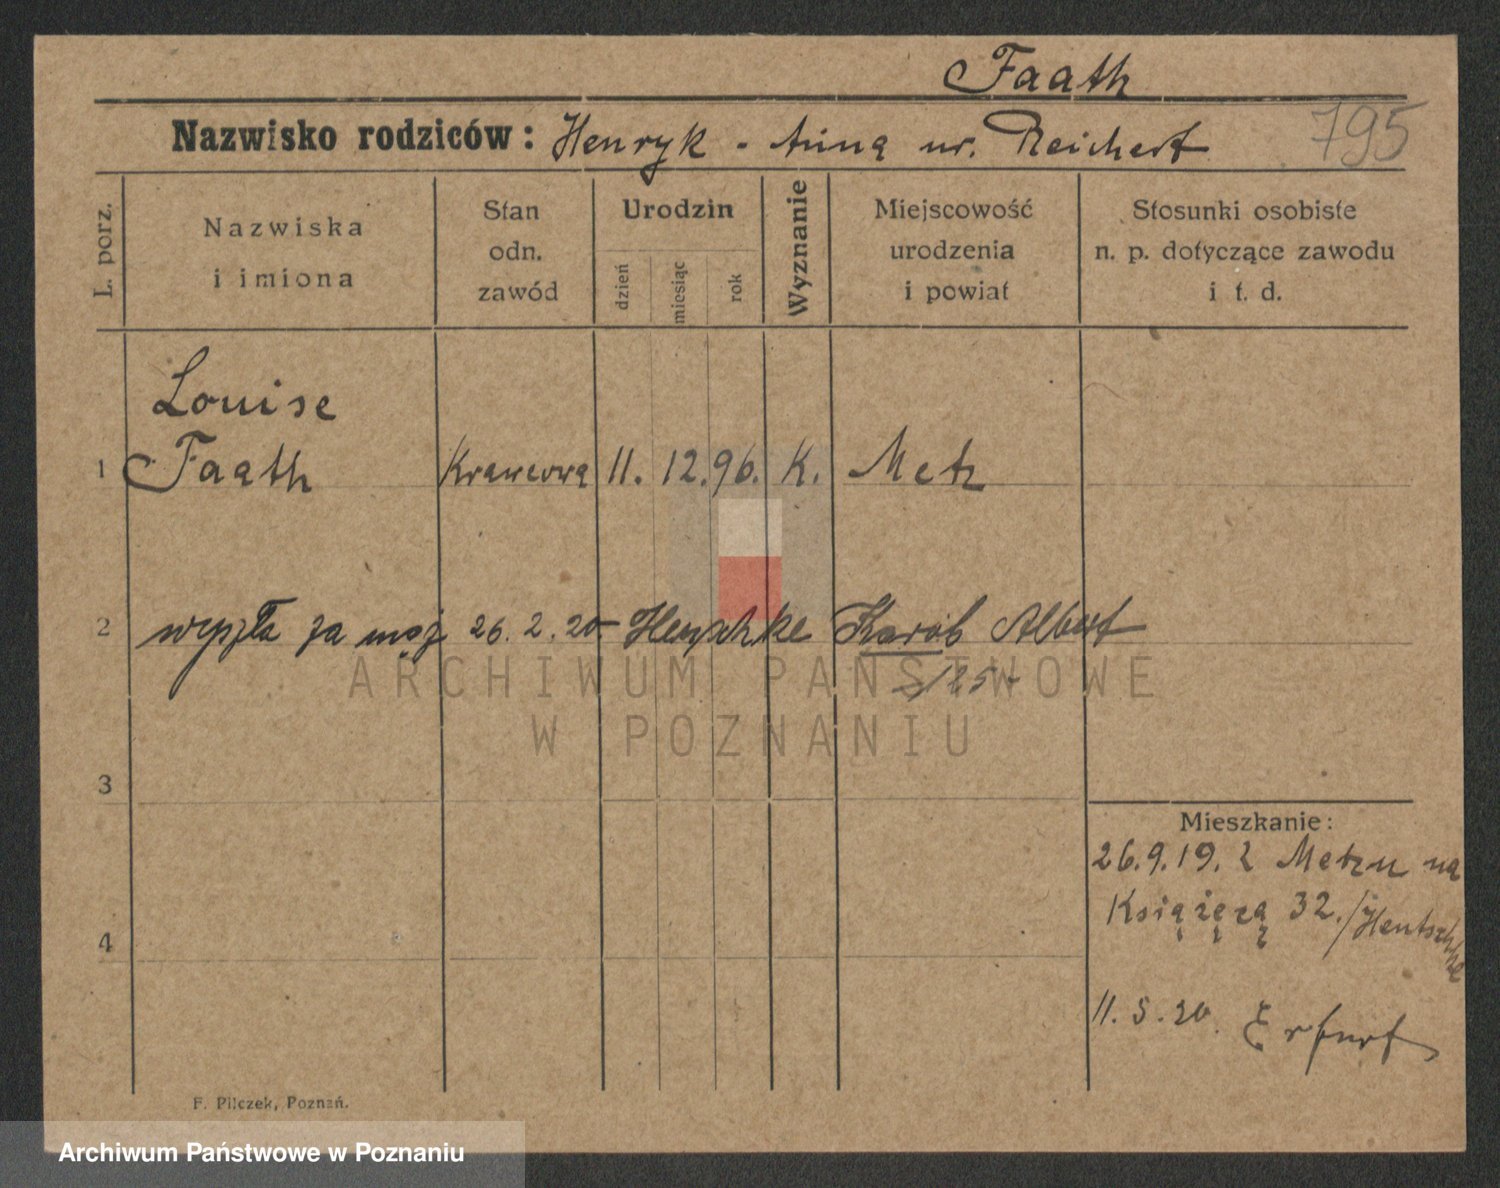 Faath
Nazwisko rodziców: Henryk - Anna ur. Reichert
795
L. porz.
Nazwiska
i imiona
Stan
odn.
zawód
Urodzin
dzień
miesiąc
rok
Wyznanie
Miejscowość
urodzenia
i powiat
Stosunki osobiste
n. p. dotyczące zawodu
i t. d.
Louise
1 Faath Krawcowa 11. 12. 96. K. Metz
2 wyszła za mąż 26. 2. 20 Karob Albert
ARCHIWUM PAŃSTWOWE
W POZNANIU
3
Mieszkanie:
26.9.19. z Metzu na
Książęcą 32./Hentschke
4
11. 5. 20. Erfurt
F. Pilczek, Poznań.
Archiwum Państwowe w Poznaniu